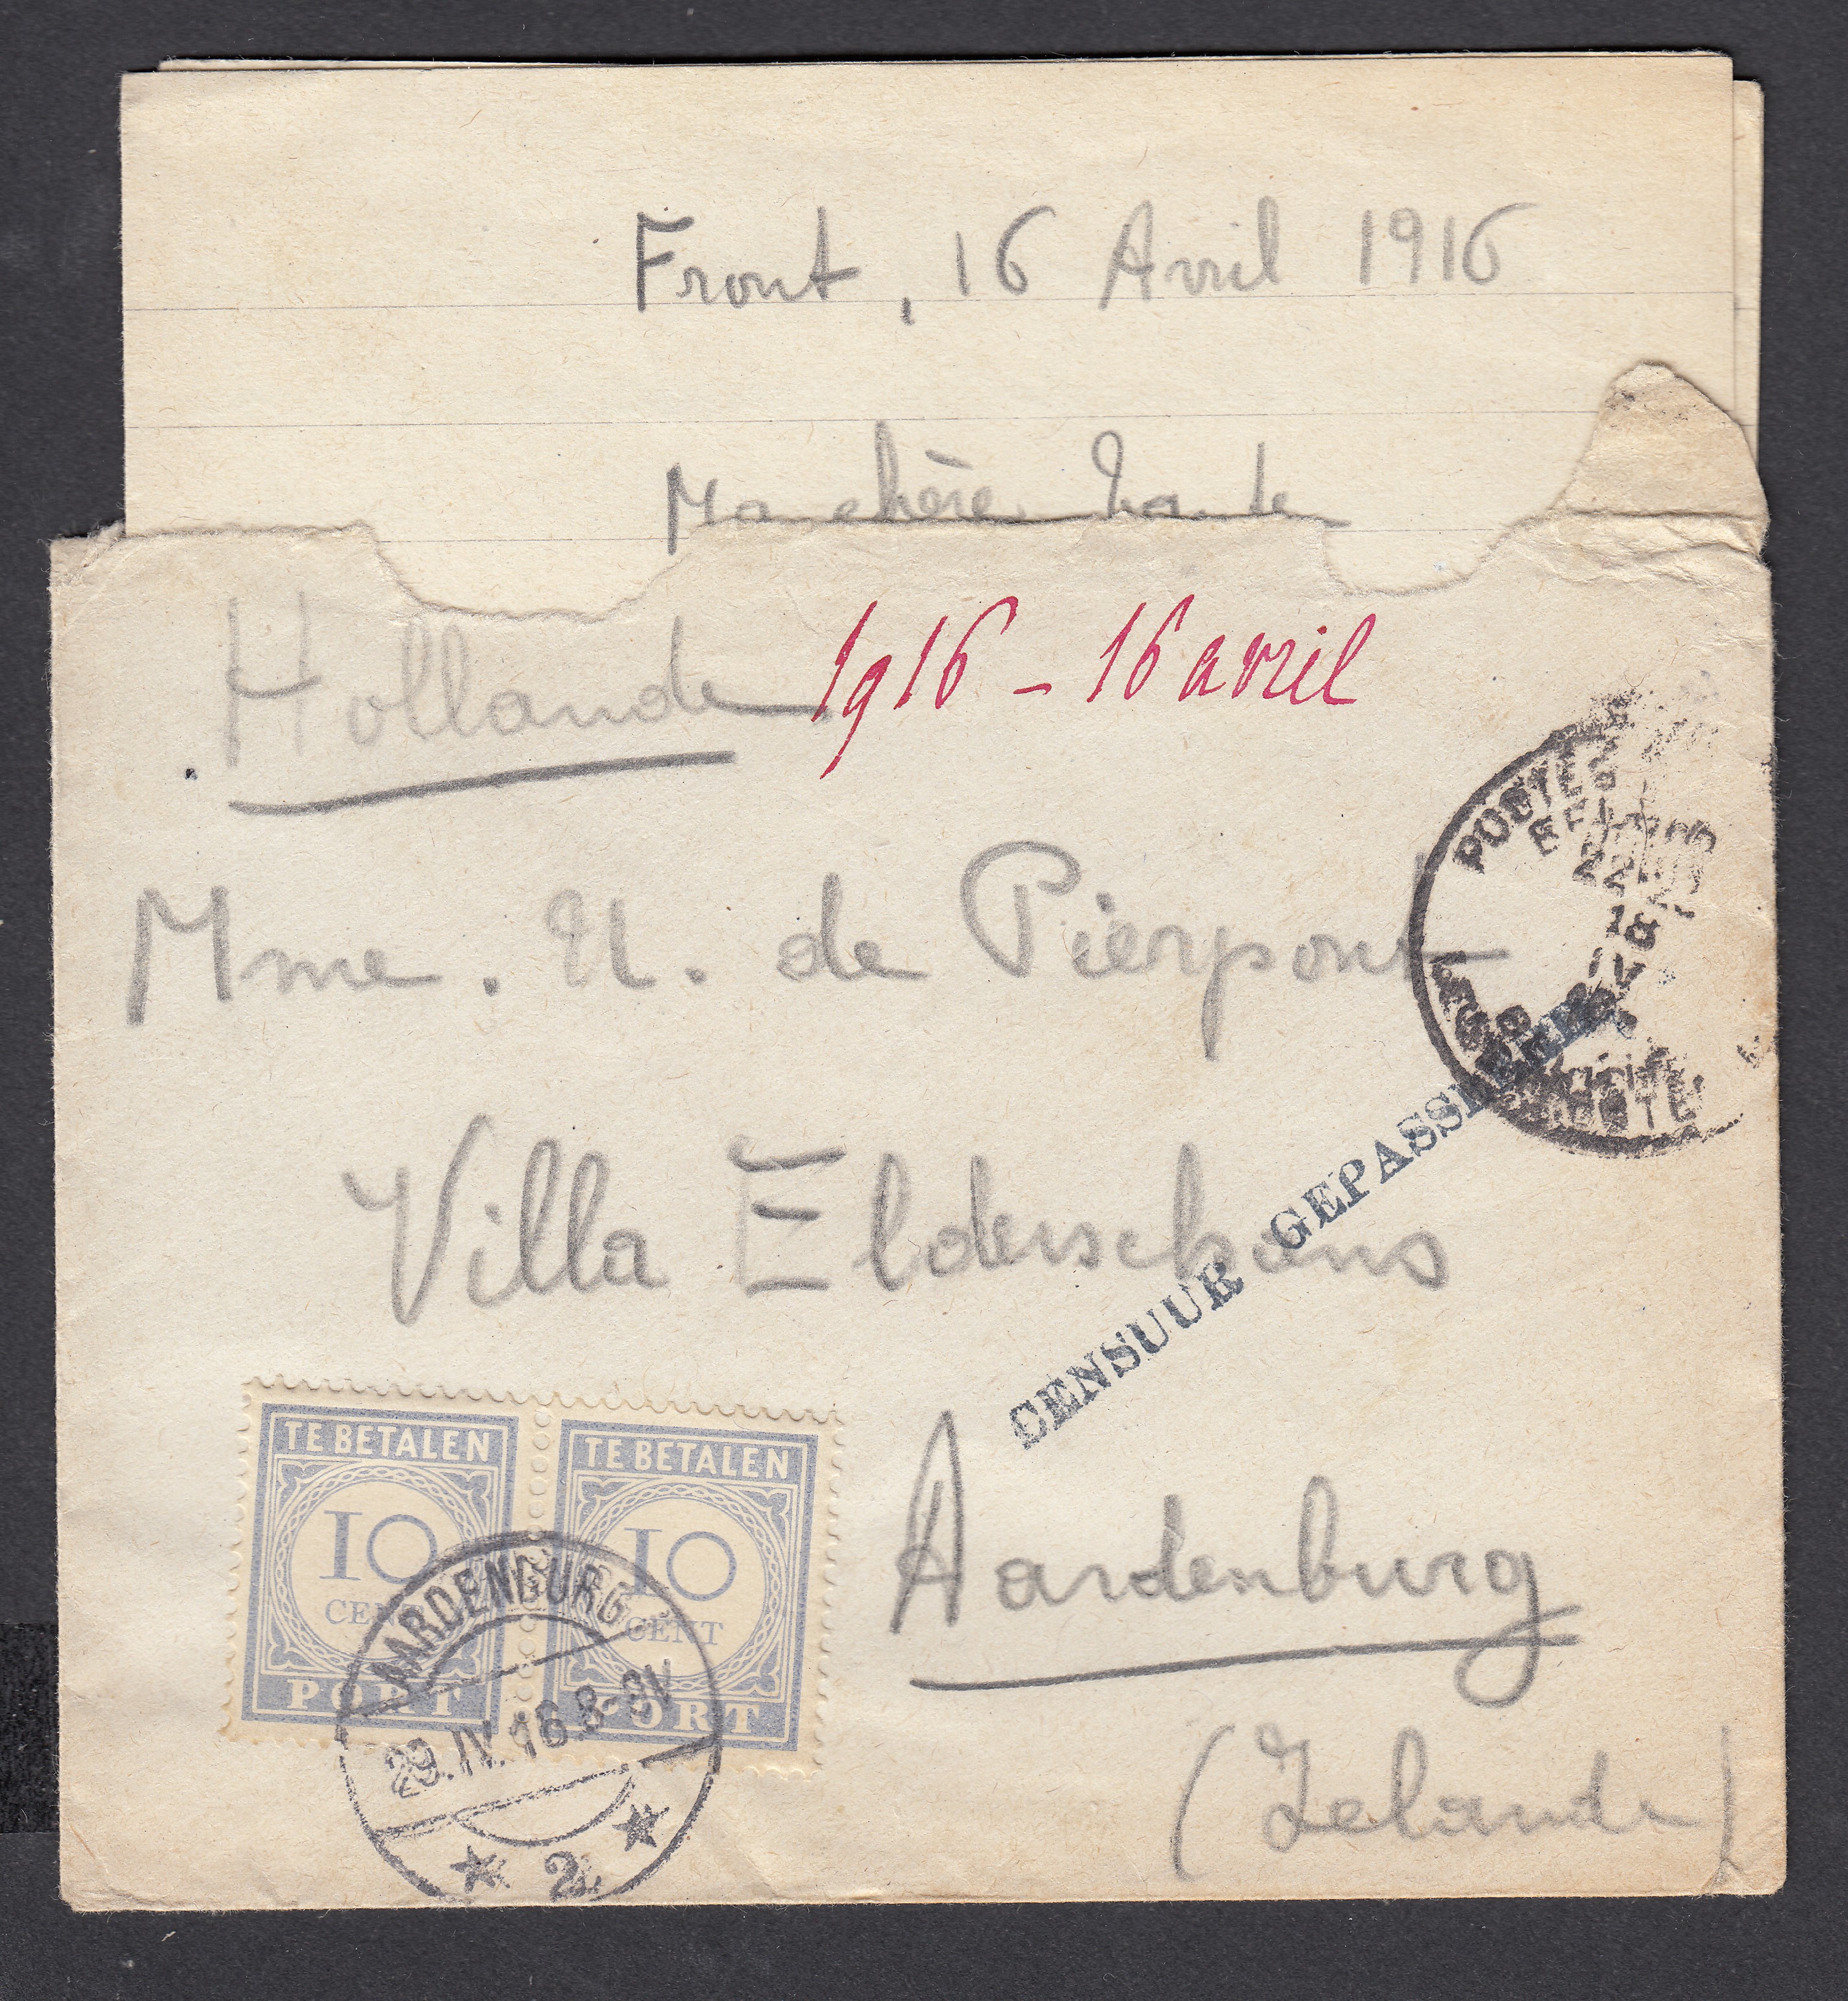 Front, 16 Avril 1916
Ma chère Tante
Hollande 1916 - 16 avril
POSTES
22
18
IV
Mme. U. de Pierpont
CENSUUR GEPASSEERD
Villa Elderschans
TE BETALEN TE BETALEN
10 10
CENT CENT
PORT PORT
AARDENBURG
29.IV.16.8-9V
2
Aardenburg
(Zelande)